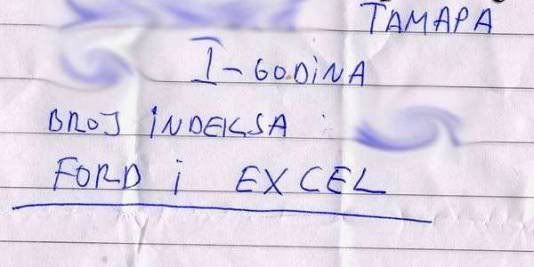 TAMAPA
I-GODINA
BROJ INDEKSA :
FORD i EXCEL